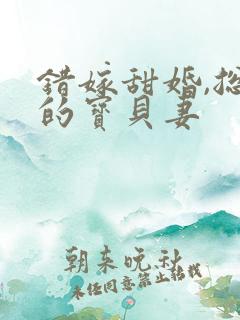 错嫁甜婚,总
的宝贝妻
朝来晚秋
未经同意禁止转载